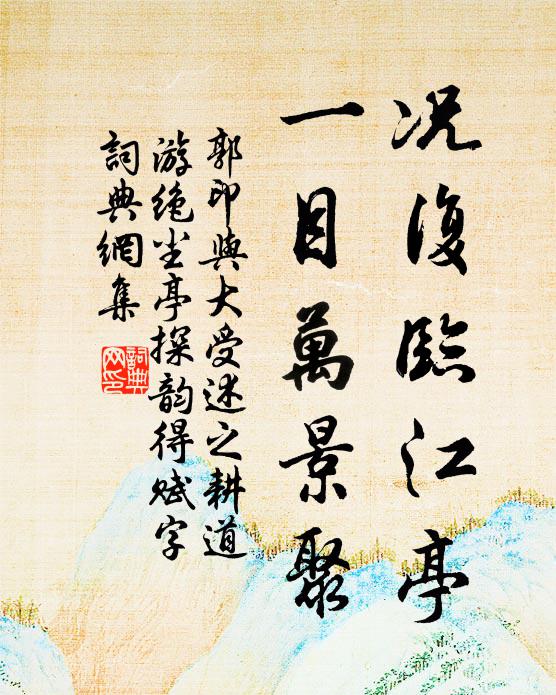 况復臨江亭
一目萬景聚
郭印與大受述之耕道
游絶尘亭探韵得赋字
詞典網集
詞典網印